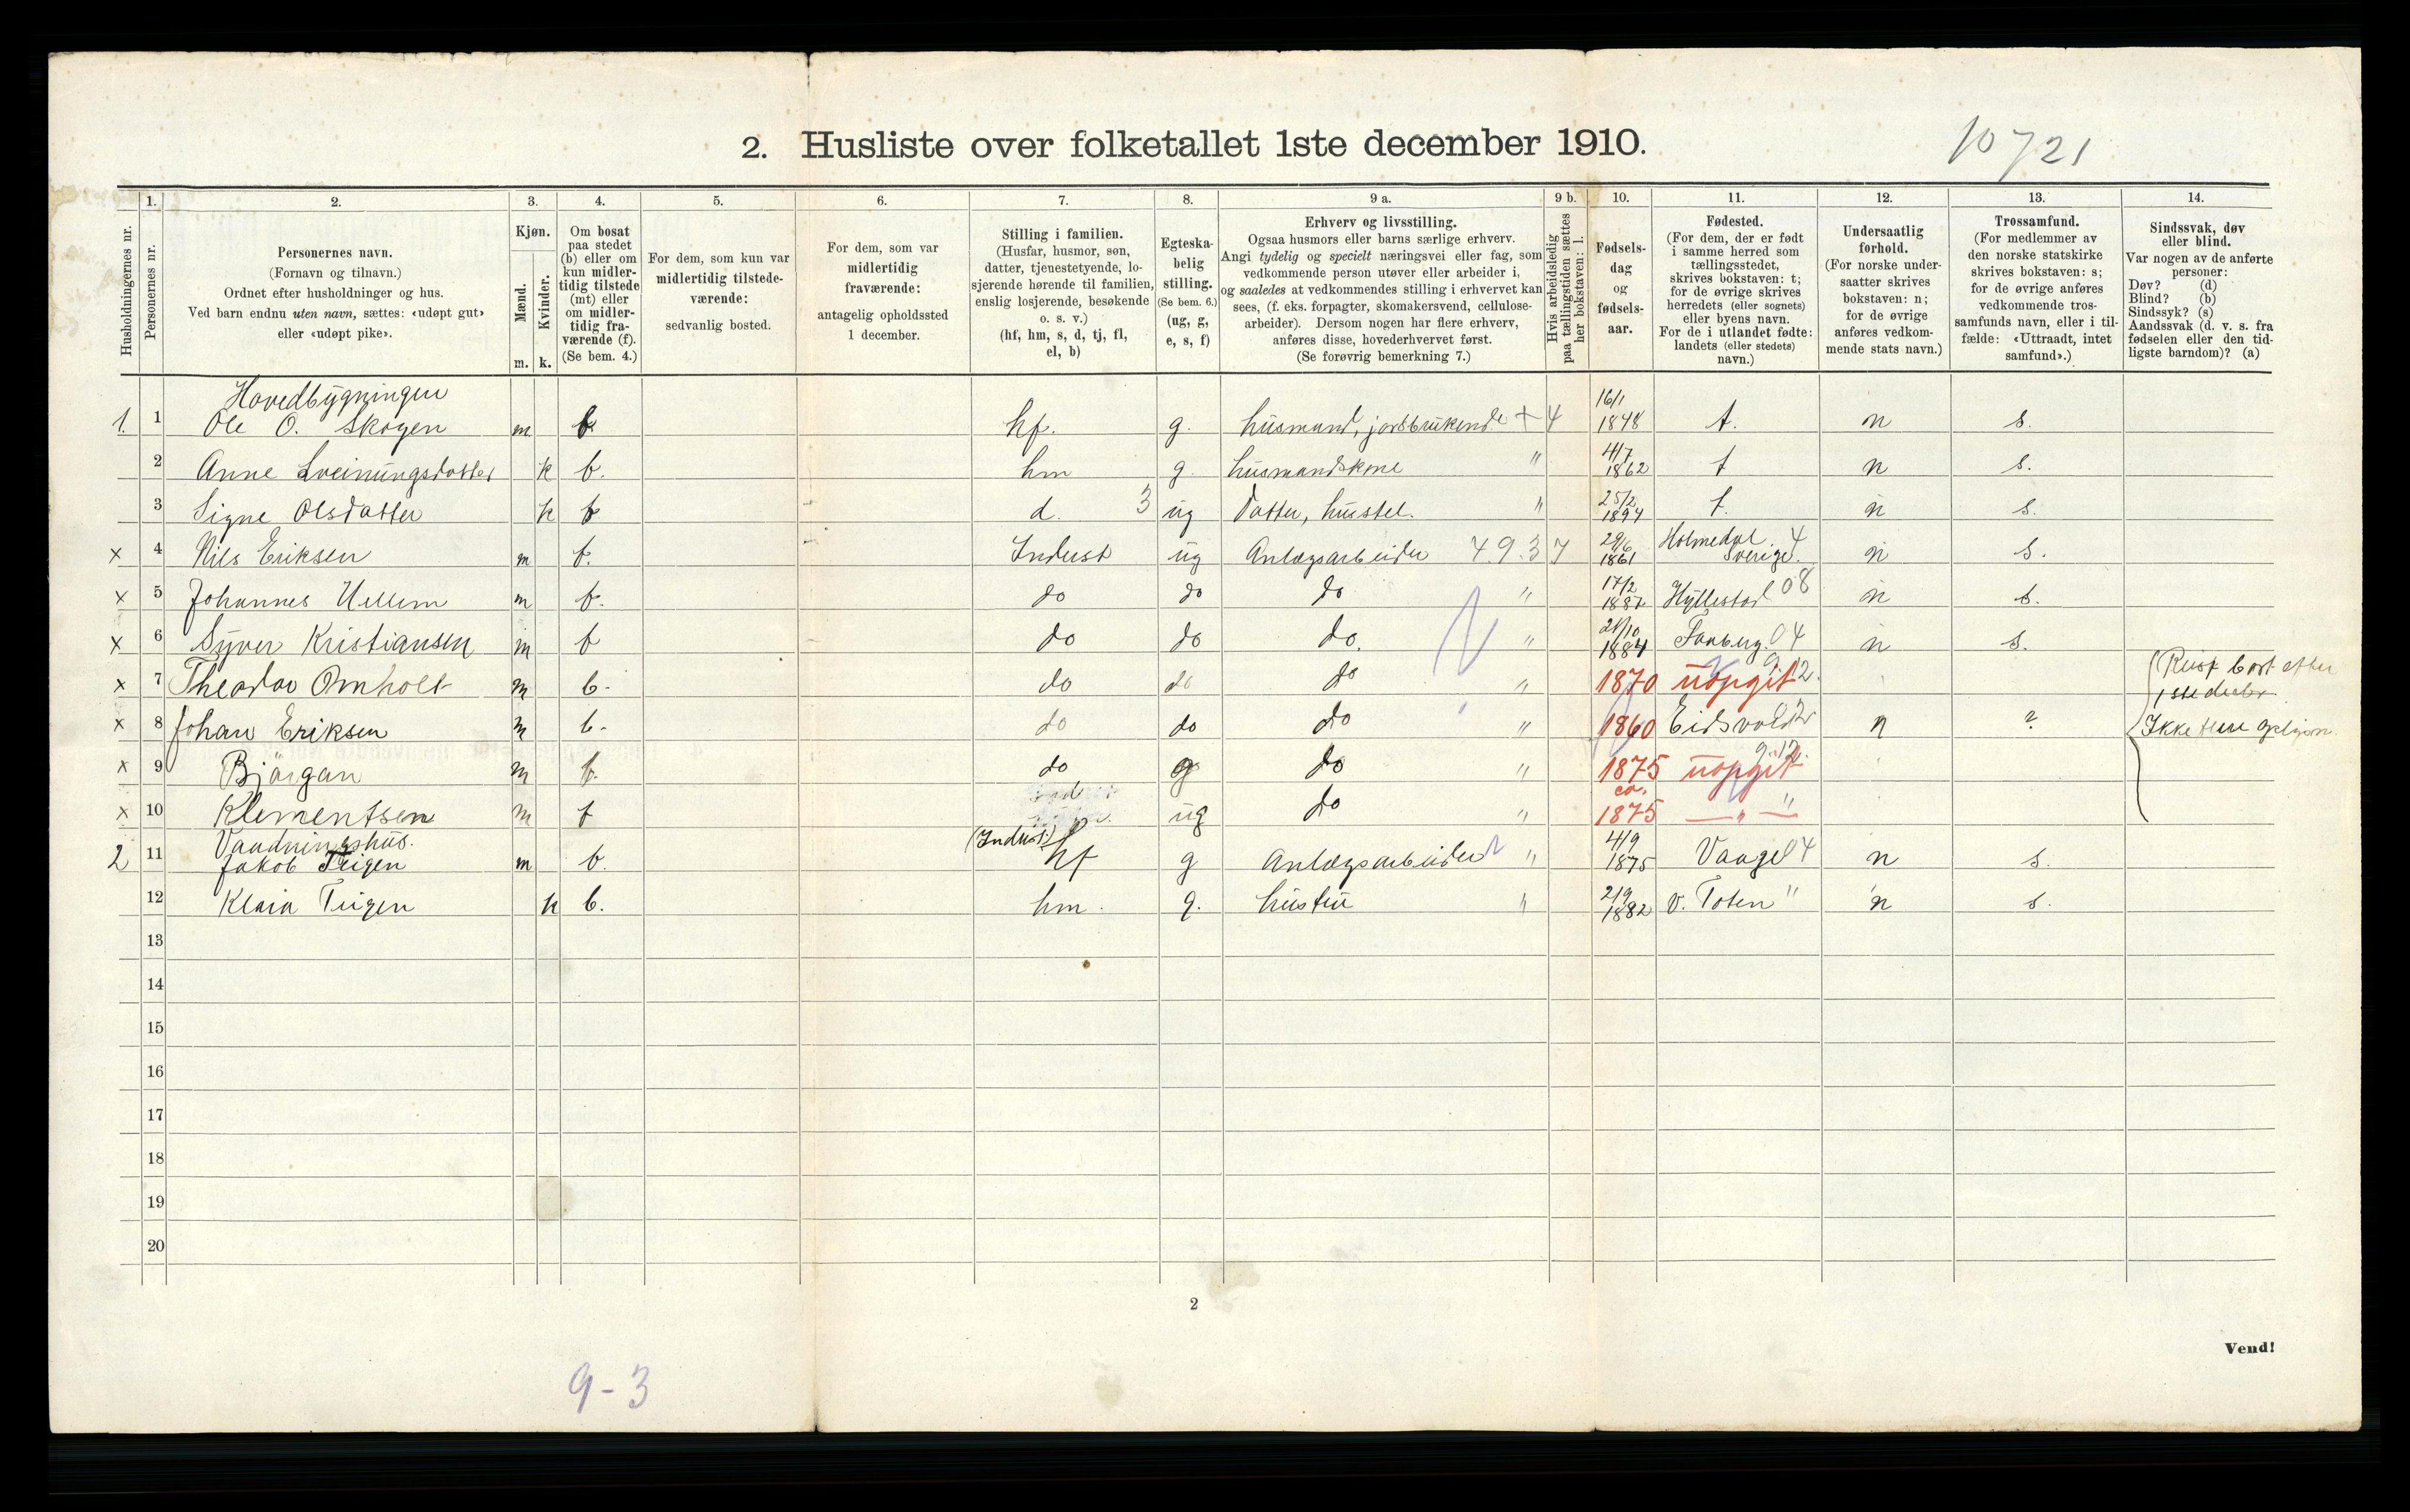 2. Husliste over folketallet 1ste december 1910.
10721
1. 2. 3. 4. 5. 6. 7. 8. 9 a. 9 b. 10. 11. 12. 13. 14.
Husholdningernes nr.
Personernes nr.
Personernes navn.
(Fornavn og tilnavn.)
Ordnet efter husholdninger og hus.
Ved barn endnu uten navn, sættes: «udøpt gut»
eller «udøpt pike».
Kjøn.
Mænd.
Kvinder.
m. k.
Om bosat
paa stedet
(b) eller om
kun midler-
tidig tilstede
(mt) eller
om midler-
tidig fra-
værende (f).
(Se bem. 4.)
For dem, som kun var
midlertidig tilstede-
værende:
sedvanlig bosted.
For dem, som var
midlertidig
fraværende:
antagelig opholdssted
1 december.
Stilling i familien.
(Husfar, husmor, søn,
datter, tjenestetyende, lo-
sjerende hørende til familien,
enslig losjerende, besøkende
o. s. v.)
(hf, hm, s, d, tj, fl,
el, b)
Egteska-
belig
stilling.
(Se bem. 6.)
(ug, g,
e, s, f)
Erhverv og livsstilling.
Ogsaa husmors eller barns særlige erhverv.
Angi tydelig og specielt næringsvei eller fag, som
vedkommende person utøver eller arbeider i,
og saaledes at vedkommendes stilling i erhvervet kan
sees, (f. eks. forpagter, skomakersvend, cellulose-
arbeider). Dersom nogen har flere erhverv,
anføres disse, hovederhvervet først.
(Se forøvrig bemerkning 7.)
Hvis arbeidsledig
paa tællingstiden sættes
her bokstaven: l.
Fødsels-
dag
og
fødsels-
aar.
Fødested.
(For dem, der er født
i samme herred som
tællingsstedet,
skrives bokstaven: t;
for de øvrige skrives
herredets (eller sognets)
eller byens navn.
For de i utlandet fødte:
landets (eller stedets)
navn.)
Undersaatlig
forhold.
(For norske under-
saatter skrives
bokstaven: n;
for de øvrige
anføres vedkom-
mende stats navn.)
Trossamfund.
(For medlemmer av
den norske statskirke
skrives bokstaven: s;
for de øvrige anføres
vedkommende tros-
samfunds navn, eller i til-
fælde: «Uttraadt, intet
samfund».)
Sindssvak, døv
eller blind.
Var nogen av de anførte
personer:
Døv? (d)
Blind? (b)
Sindssyk? (s)
Aandssvak (d. v. s. fra
fødselen eller den tid-
ligste barndom)? (a)
Hovedbygningen
1. 1 Ole O. Skogen m b. hf. g. husmand, jordbrukende + 4 16/1 1848 t. n s.
2 Anne Sveinungsdatter k b. hm g. husmandskone " 4/7 1862 t n s.
3 Signe Olsdatter k b d. 3 ug Datter, husstel. " 25/2 1894 t. n s.
x 4 Nils Eriksen m b. Indust ug Anlægsarbeider 49.37 29/6 1861 Holmedal Sverige. 4 n s.
x 5 Johannes Hellem m b. do do do " 17/2 1887 Hyllestad 08 n s.
x 6 Syver Kristiansen m b do do do. " 1884 Faaberg 04 n s.
x 7 Theodor Omholt m b. do do do " 1870 uopgit
x 8 Johan Eriksen m b. do do do " 1860 Eidsvold n ?
x 9 Bjørgan m b. do g do " 1875 uopgit
x 10 Klementsen m ug do " ca. 1875 — " —
Reist bort efter
1ste decbr.
Vaadningshus.
2 11 Jakob Teigen m b. (Indust.) hf g Anlægsarbeider " 4/9 1875 Vaage 04 n s.
12 Klara Teigen k b. hm. g. hustru " 21/9 1882 V. Toten " n s.
13
14
15
16
17
18
19
20
2
Vend!
9-3